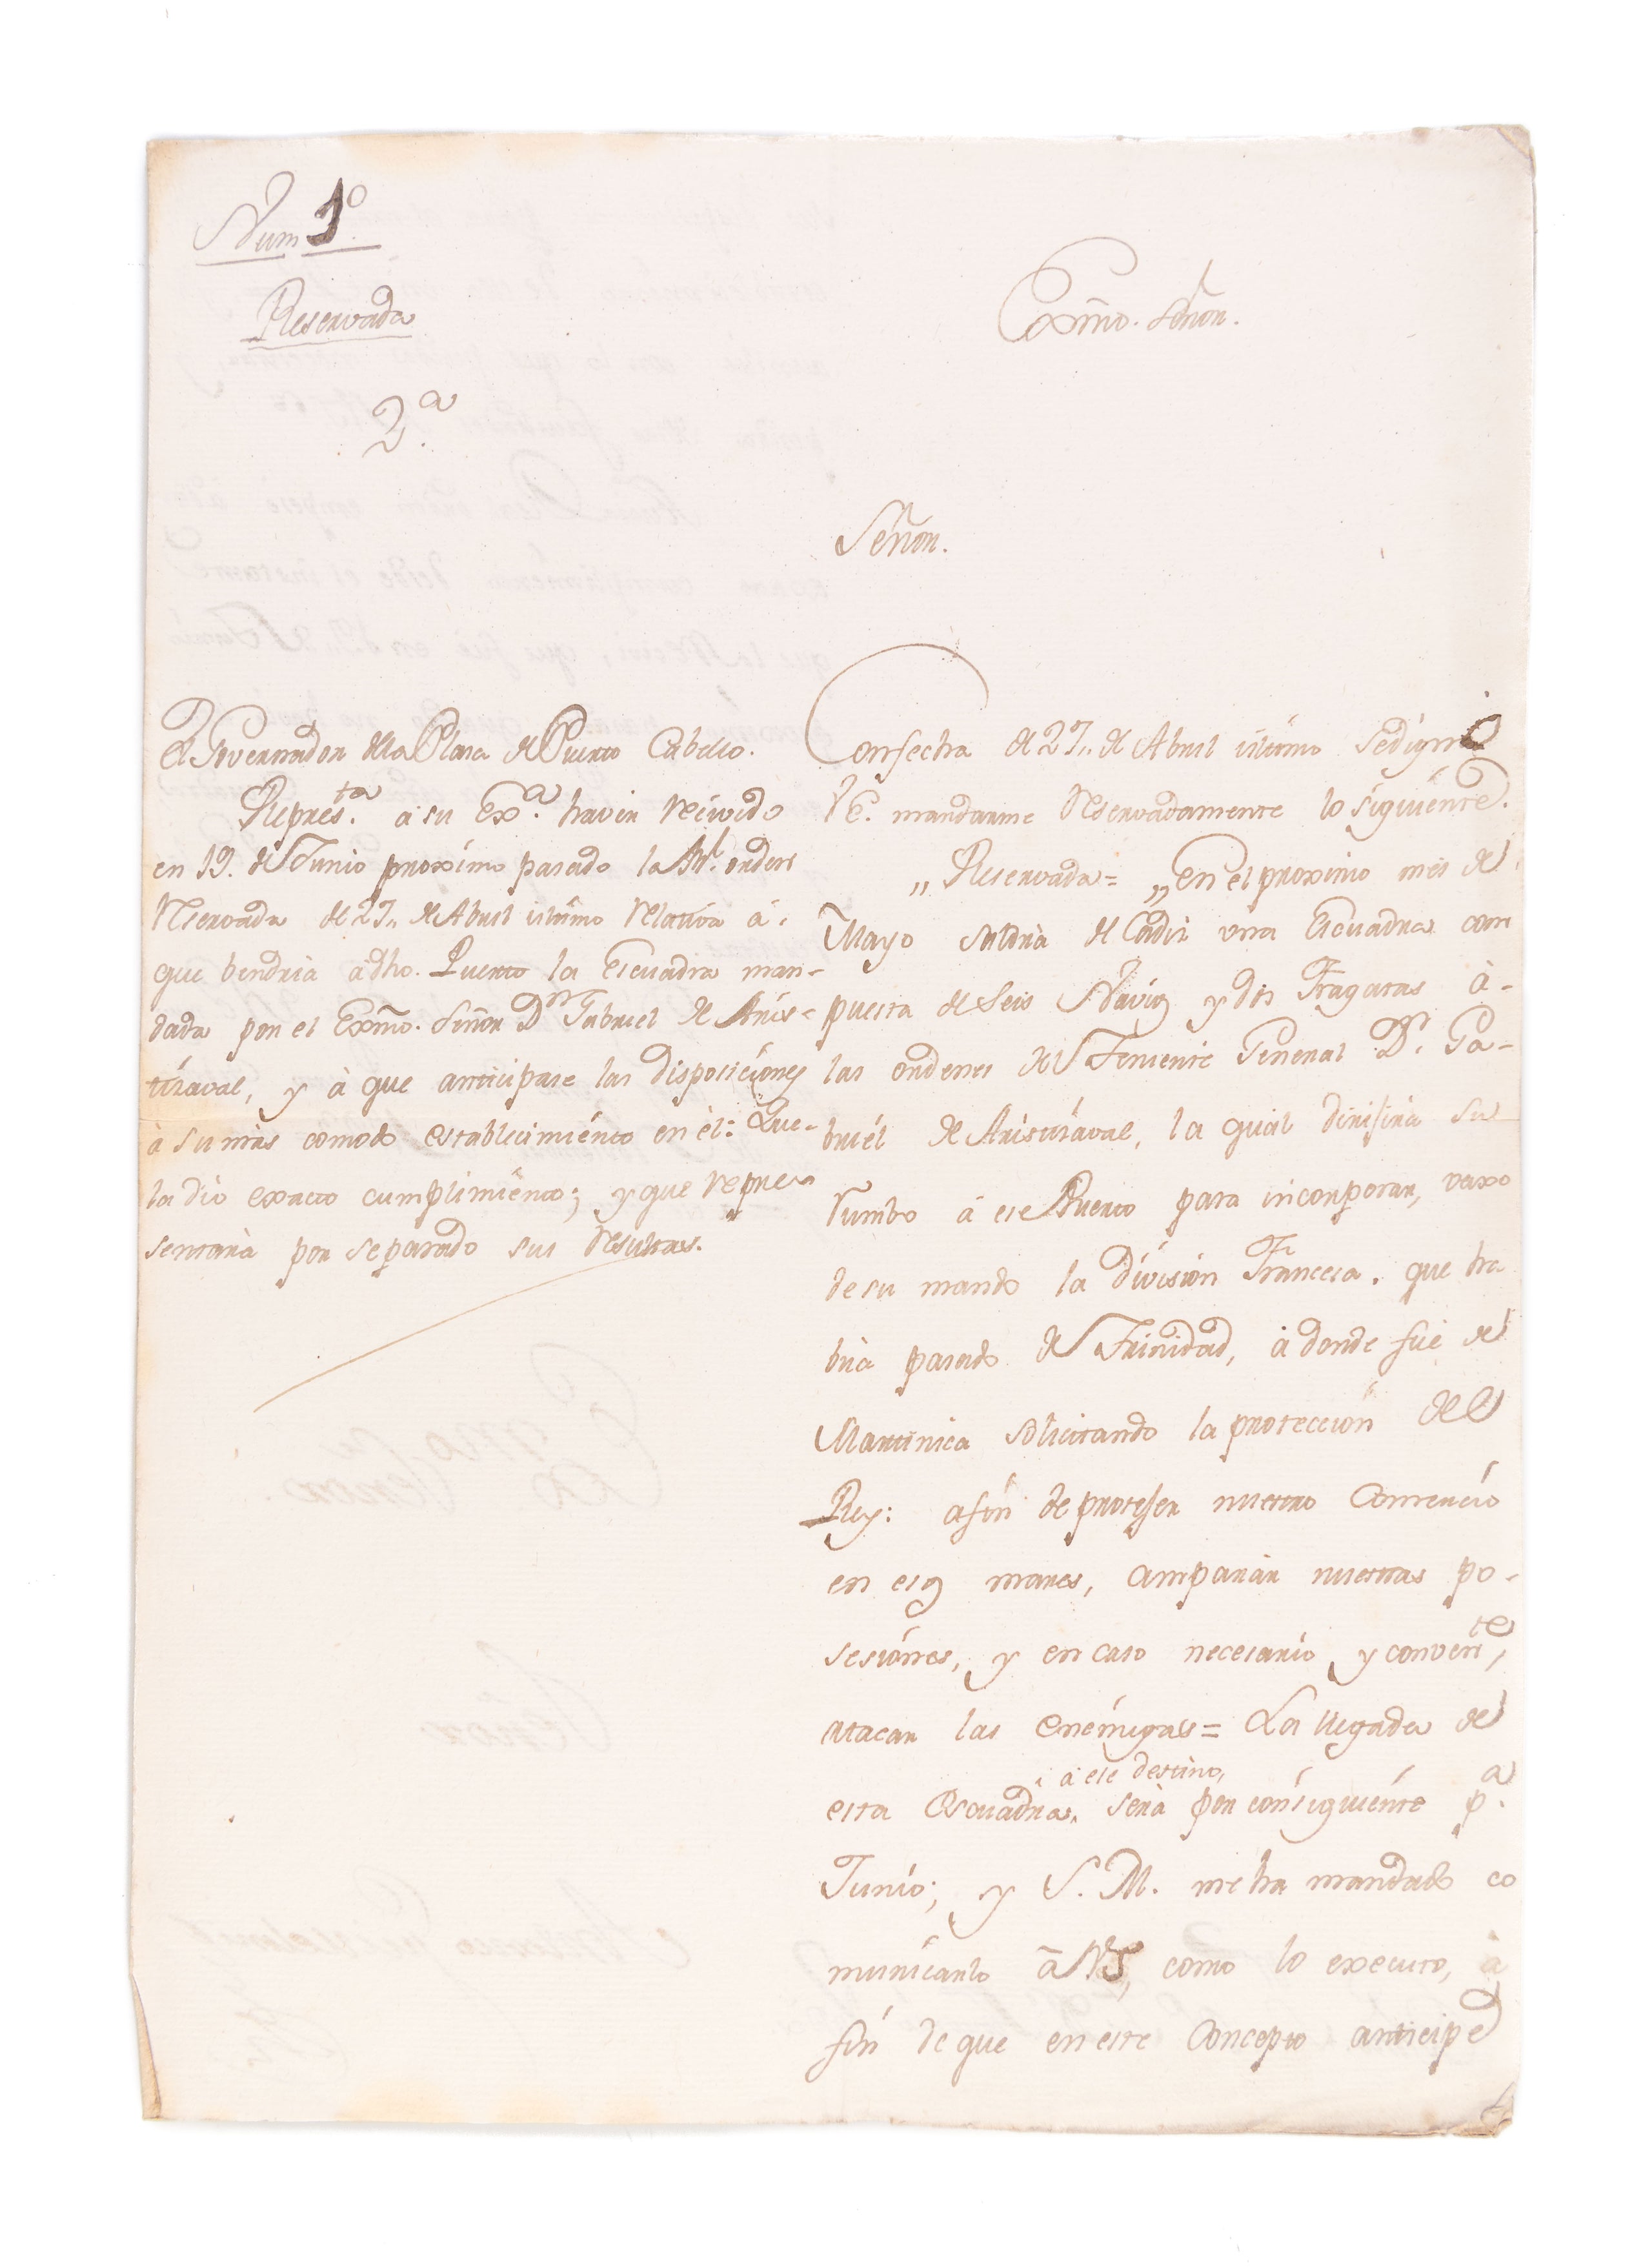 Num 1º.
Reservada
2.ª
Exmo. Señor.
Señor.
El Governador dela Plasa de Puerto Cabello.
Repres.ta a su Ex.a haver recivido
en 19. de Junio proximo pasado la Rl. orden
reservada de 27,, de Abril ultimo relativa á
que bendria á dho. Puerto la Escuadra man-
dada por el Exmo. Señor Dn Gabriel de Aris-
tizaval, y à que anticipase las disposiciones
à su mas comodo establecimiento en èl: Que
la dio exacto cumplimiento; y que repre
sentaria por separado sus resultas.
Confecha de 27,, de Abril ultimo sedignó
V.E. mandarme reservadamente lo siguiente.
,, Reservada= ,, En el proximo mes de
Mayo saldrà de Cadiz una Escuadra com
puesta de seis Navios y dos Fragatas à-
las ordenes del Teniente General Dn. Ga-
briél de Aristizával, la qual dirijirá su
rumbo á ese Puerto para incorporar, vaxo
de su mando la división Francesa. que ha
bria pasado de Trinidad, à donde fué de
Martinica solicitando la protección del
Rey: afin de protejer nuestro Comercio
en esos mares, amparàr nuestras po-
sesiónes, y en caso necesario y convente,
atacar las enemigas= La llegada de
à ese destino,
esta Escuadra, serà por consiguiénte p.a
Junio; y S. M. me ha mandado co
municarlo à VS, como lo executo, à
fin de que en este Concepto anticipe